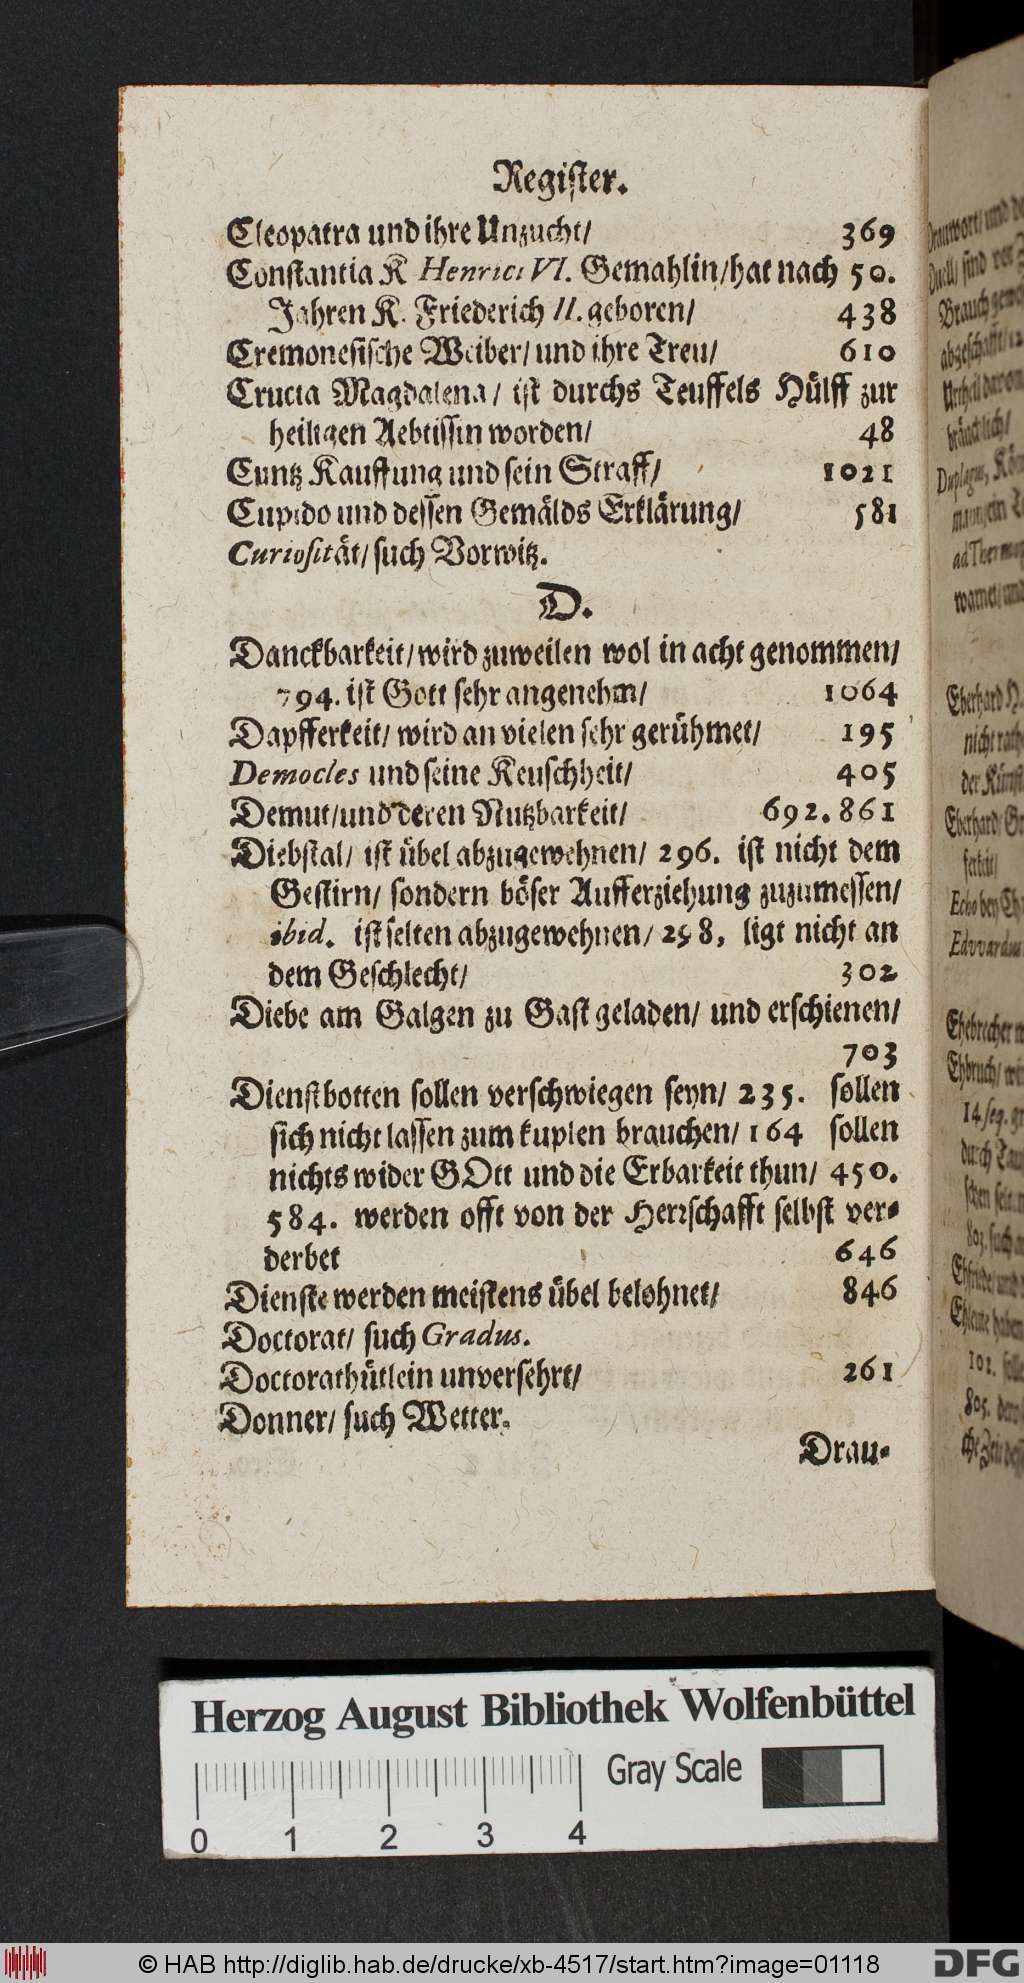 Register.
Cleopatra und ihre Unzucht/ 369
Constantia K Henrici VI. Gemahlin/hat nach 50.
Jahren K. Friederich II. geboren/ 438
Cremonesische Weiber/ und ihre Treu/ 610
Crucia Magdalena/ ist durchs Teuffels Hülff zur
heiligen Aebtissin worden/ 48
Cuntz Kauffung und sein Straff/ 1021
Cupido und dessen Gemälds Erklärung/ 581
Curiosität/ such Vorwitz.
D.
Danckbarkeit/ wird zuweilen wol in acht genommen/
794. ist Gott sehr angenehm/ 1064
Dapfferkeit/ wird an vielen sehr gerühmet/ 195
Democles und seine Keuschheit/ 405
Demut/und deren Nutzbarkeit/ 692. 861
Diebstal/ ist übel abzugewehnen/ 296. ist nicht dem
Gestirn/ sondern böser Aufferziehung zuzumessen/
ibid. ist selten abzugewehnen/ 298, ligt nicht an
dem Geschlecht/ 302
Diebe am Galgen zu Gast geladen/ und erschienen/
703
Dienstbotten sollen verschwiegen seyn/ 235. sollen
sich nicht lassen zum kuplen brauchen/ 164 sollen
nichts wider GOtt und die Erbarkeit thun/ 450.
584. werden offt von der Herrschafft selbst ver-
derbet 646
Dienste werden meistens übel belohnet/ 846
Doctorat/ such Gradus.
Doctorathütlein unversehrt/ 261
Donner/ such Wetter.
Drau-
Herzog August Bibliothek Wolfenbüttel
Gray Scale
0 1 2 3 4
© HAB http://diglib.hab.de/drucke/xb-4517/start.htm?image=01118
DFG